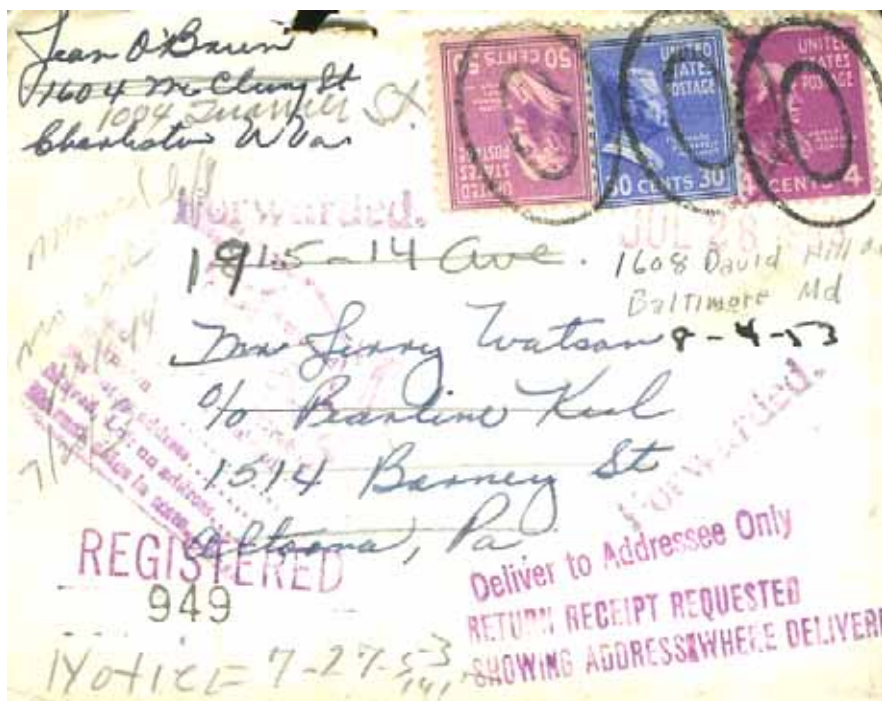 Jean O'Brien
1604 McClung St
Charleston W Va.
50 CENTS 50
UNITED
STATES
POSTAGE
UNITED
STATES
POSTAGE
30 CENTS 30
UNITED
STATES
POSTAGE
4 CENTS 4
Forwarded.
JUL 28
1915-14 Ave.
1608 David Hill
Baltimore Md
8-4-53
Watson
c/o
1514 Barney St
Altoona, Pa
Forwarded.
REGISTERED
949
Deliver to Addressee Only
RETURN RECEIPT REQUESTED
SHOWING ADDRESS WHERE DELIVERE
Notice 7-27-53